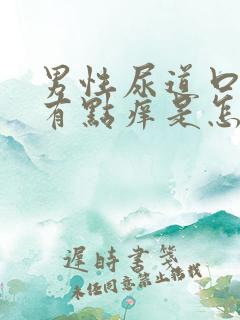 男性尿道口
有點痒是怎
遲時書箋
未经同意禁止搭载